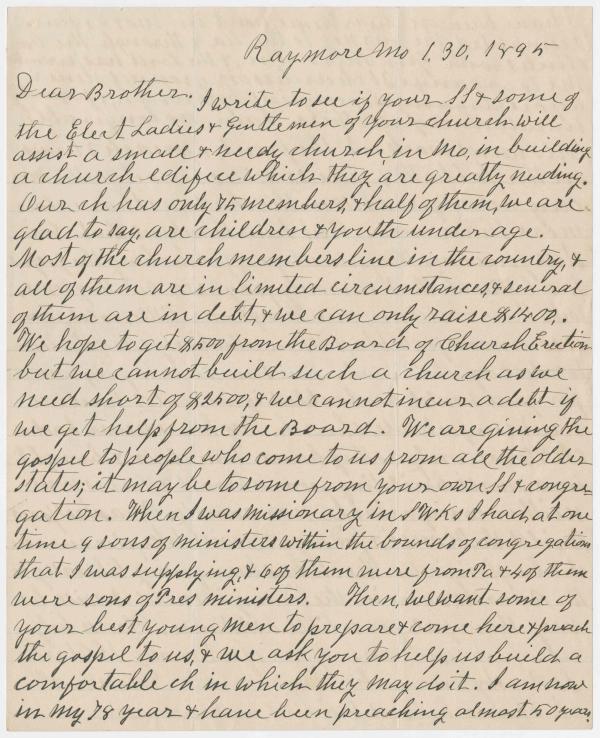 Raymore Mo 1. 30, 1895
Dear Brother. I write to see if your SS & some of
the Elect Ladies & Gentlemen of your church will
assist a small & needy church, in Mo, in building
a church edifice which they are greatly needing.
Our ch has only 75 members, & half of them, we are
glad to say, are children & youth under age.
Most of the church members live in the country, &
all of them are in limited circumstances, & several
of them are in debt, & we can only raise $1400,.
We hope to get $500 from the Board of Church Erection
but we cannot build such a church as we
need short of $2500, & we cannot incur a debt if
we get help from the Board. We are giving the
gospel to people who come to us from all the older
states; it may be to some from your own SS & congre-
gation. When I was missionary in SW Ks I had at one
time 9 sons of ministers within the bounds of congregations
that I was supplying, & 6 of them were from Pa & 4 of them
were sons of Pres ministers. Then, we want some of
your best young men to prepare & come here & preach
the gospel to us, & we ask you to help us build a
comfortable ch in which they may do it. I am now
in my 78 year & have been preaching almost 50 years